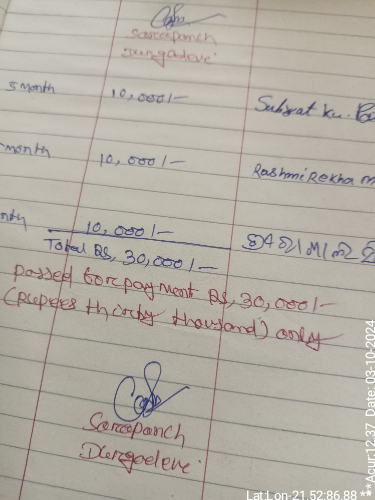 Sarcapanch
Durgadevi
5 month 10,000/- Subrat Ku.
month 10,000/- Rashmi Rekha
10,000/-
Total Rs, 30,000/-
passed for payment Rs, 30,000/-
(rupees thirty thousand) only
Sarcapanch
Durgadevi
Lat Lon-21.52:86.88
**Acur:12.37 Date: 03-10-2024